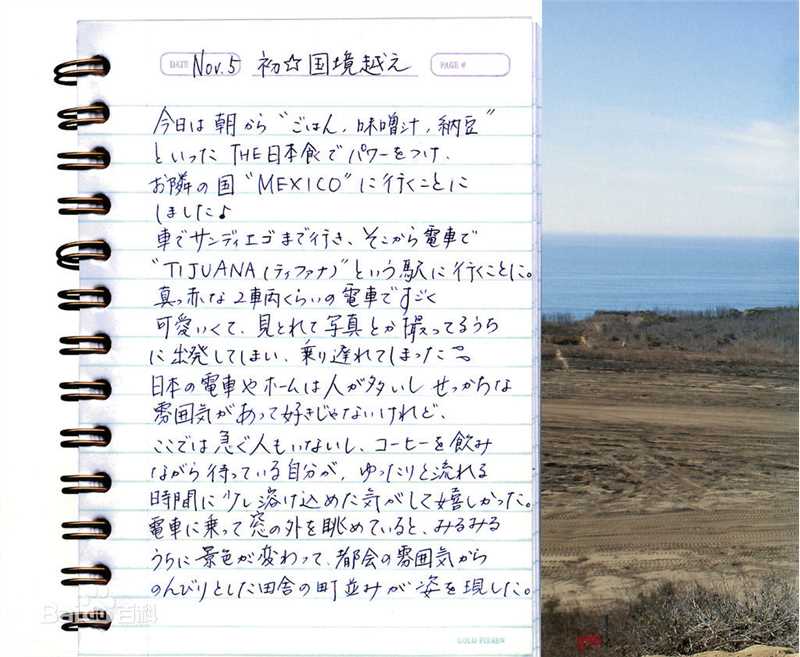 DATE Nov. 5 初☆国境越え PAGE #
今日は朝から“ごはん, 味噌汁, 納豆”
といった THE日本食でパワーをつけ、
お隣の国“MEXICO”に行くことに
しました♪
車でサンディエゴまで行き、そこから電車で
“TIJUANA(ティファナ)”という駅に行くことに。
真っ赤な2車両くらいの電車ですごく
可愛いくて、見とれて写真とか撮ってるうち
に出発してしまい、乗り遅れてしまった
日本の電車やホームは人が多いし せっかちな
雰囲気があって好きじゃないけれど、
ここでは急ぐ人もいないし、コーヒーを飲み
ながら待っている自分が、ゆったりと流れる
時間に少し溶け込めた気がして嬉しかった。
電車に乗って窓の外を眺めていると、みるみる
うちに景色が変わって、都会の雰囲気から
のんびりとした田舎の町並みが姿を現した。
Baidu百科